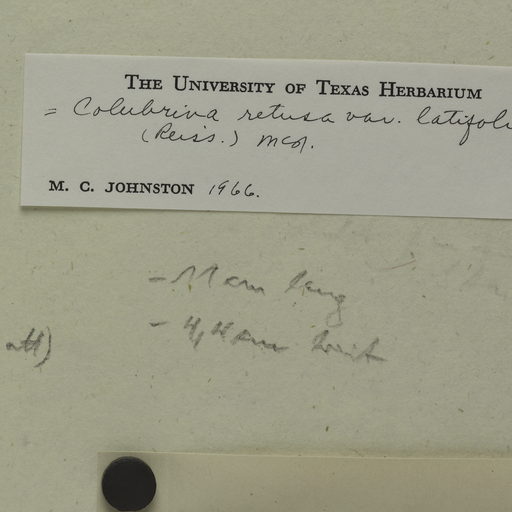 THE UNIVERSITY OF TEXAS HERBARIUM
= Colubrina retusa var. latifoli
(Reiss.)
M. C. JOHNSTON 1966.
cm lang
- 4,4 cm breit